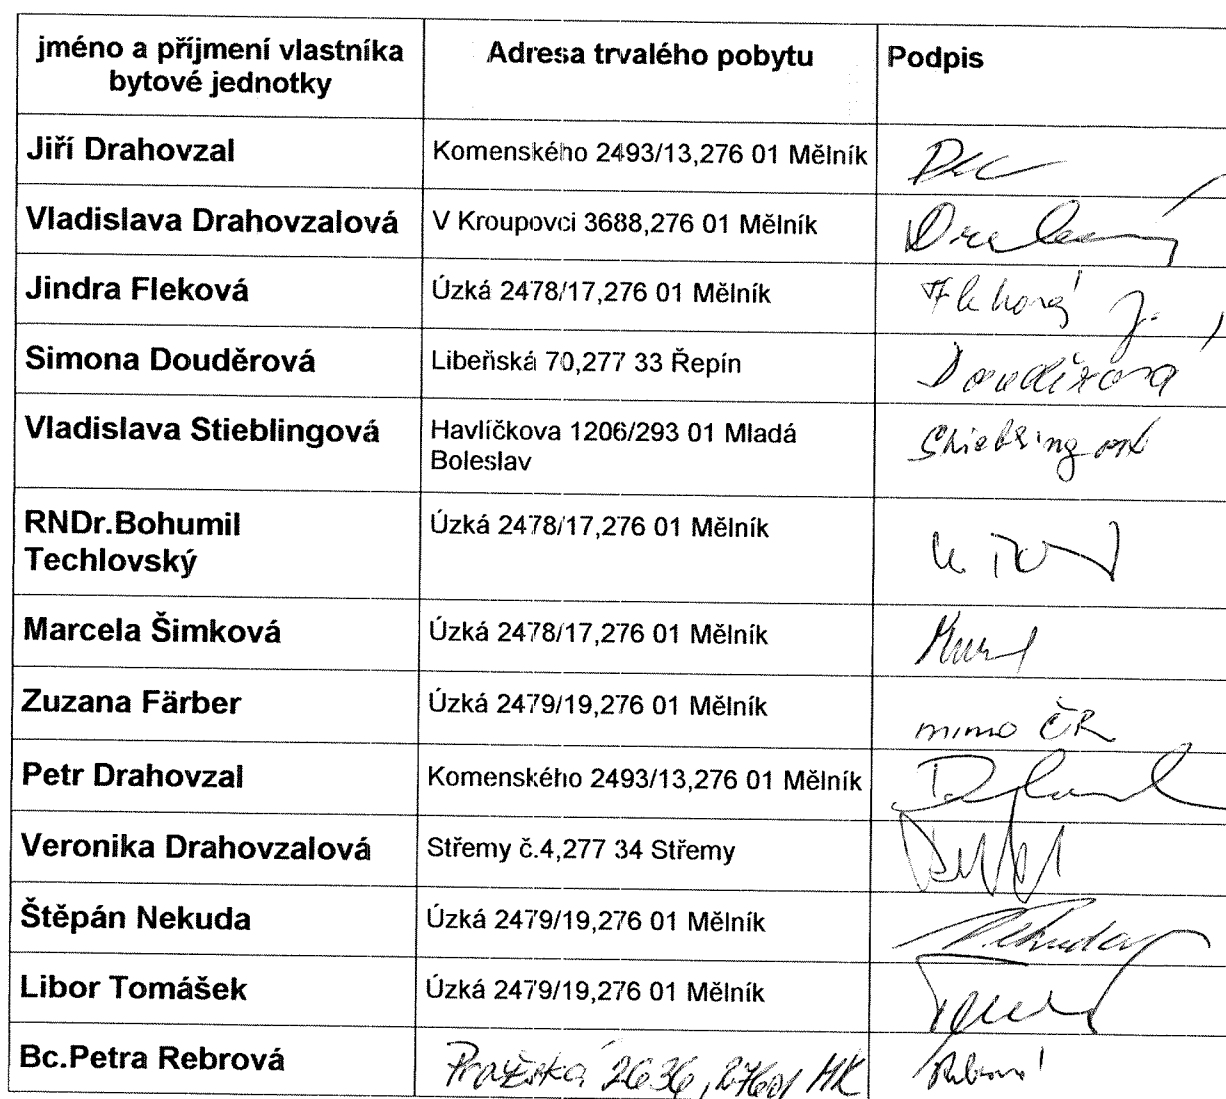 jméno a příjmení vlastníka
bytové jednotky
Adresa trvalého pobytu
Podpis
Jiří Drahovzal
Komenského 2493/13,276 01 Mělník
Vladislava Drahovzalová
V Kroupovci 3688,276 01 Mělník
Jindra Fleková
Úzká 2478/17,276 01 Mělník
Fleková J.
Simona Douděrová
Libeňská 70,277 33 Řepín
Douděrová
Vladislava Stieblingová
Havlíčkova 1206/293 01 Mladá
Boleslav
Stieblingová
RNDr.Bohumil
Techlovský
Úzká 2478/17,276 01 Mělník
Marcela Šimková
Úzká 2478/17,276 01 Mělník
Zuzana Färber
Úzká 2479/19,276 01 Mělník
mimo ČR
Petr Drahovzal
Komenského 2493/13,276 01 Mělník
Veronika Drahovzalová
Střemy č.4,277 34 Střemy
Štěpán Nekuda
Úzká 2479/19,276 01 Mělník
Nekuda
Libor Tomášek
Úzká 2479/19,276 01 Mělník
Bc.Petra Rebrová
Pražská 2636, 27601 MK
Rebrová